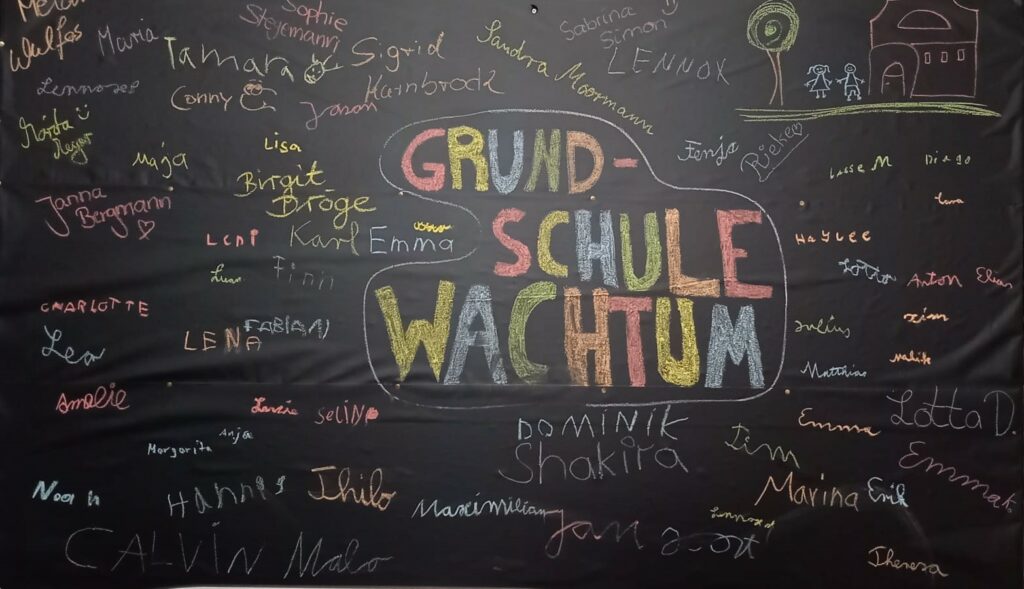 Wulfes
Maria
Tamara
Sophie
Stegemann
Sigrid
Karnbrock
Jason
Conny
Sandra Moormann
Sabrina
Simon
LENNOX
Maja
Lisa
Birgit
Dröge
Janna
Bergmann
GRUND-
SCHULE
WACHTUM
Fenja
Rieke
Luise M
Diego
LENI
Karl
Emma
Finn
HAYLEE
Lotta
Anton
Elias
CHARLOTTE
Lea
LENA
FABIAN
Julius
Matthias
Malik
Amelie
SELINA
DOMINIK
Shakira
Tim
Emma
Lotta D.
Emma K.
Margarita
Anja
Noah
Hannes
Thilo
Maximilian
Jan
Marina
Erik
CALVIN
Malo
Theresa